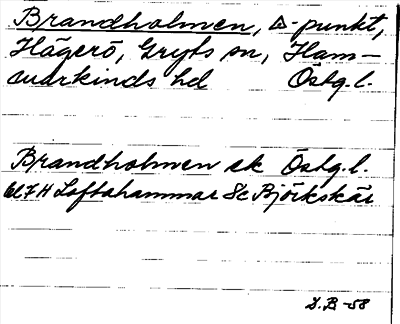 Brandholmen, △-punkt,
Hägerö, Gryts sn, Ham-
markinds hd Östg.l.
Brandholmen ek Östg.l.
6l7H Loftahammar Sc Björkskär
S.B -58